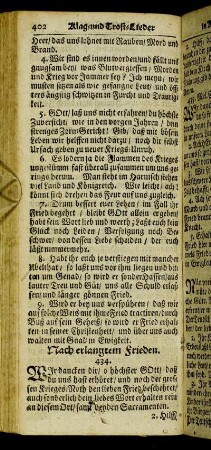 402 Klag- und Trost-Lieder
Herr/ das uns lohnet mit Rauben/ Mord und
Brand.
4. Wir sind es innen worden/ und fällt uns
gungsam bey/ was Blutvergiessen/ Morden
und Krieg vor Jammer sey?
müssen jetzt als wie gefangne Leut/ und öff-
ters ängstig schwitzen in Furcht und Traurig-
keit.
5. GOtt/ laß uns nicht erfahren/ du höchste
Zuversicht/ wie in den letzten Jahren/ dein
strenges Zorn-Gericht! Gib/ daß wir bösen
Leben wir helffen nicht darzu/ noch dir selbst
Ursach geben zu neuer Kriegs-Unruh.
6. Es lodern ja die Flammen des Krieges
ungestümm fast überall zusammen um uns
herum. Man siehet im Harnisch stehen
viel Land und Königreich. Wie leicht/ ach!
könnt sich drehen das Feur auf uns zugleich.
7. Drum bessert euer Leben/ im Fall ihr
Fried begehrt/ bleibt GOtt allein ergeben/
habt sein Wort lieb und werth; Laßt euch kein
Glück noch Leiden/ Verfolgung noch Be-
schwer/ von dessen Liebe scheiden/ der euch
läßt nimmermehr.
8. Habt ihr euch je verstiegen mit mancher
Ubelthat/ so laßt uns vor ihm liegen und bit-
ten um Genad/ so wird er sonder
lauter Treu und Güt/ uns alle Schuld erlas-
sen/ und länger gönnen Fried.
9. Wird er bey uns verspühren/ daß wir
auf solche Weis um ihne Fried tractiren/ durch
Buß auf sein Geheiß/ so wird er Fried erhal-
ten in seiner Christenheit/ und über uns auch
walten mit Gnad in Ewigkeit.
Nach erlangtem Frieden.
434.
WIr dancken dir/ o höchster GOtt/ daß
du uns hast erhöret/ und noch der gros-
sen Krieges-Noth den lieben Fried bescheret/
auch sonderlich dein liebes Wort erhalten rein
an diesem Ort/ samt den Sacramenten.
2. Hilff